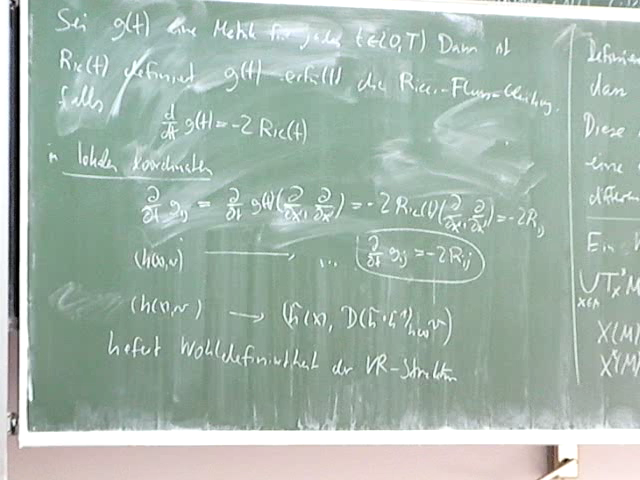 Sei g(t) eine Metrik für jedes t ∈ [0,T) Dann ist
Ric(t) definiert g(t) erfüllt die Ricci-Fluss-Gleichung,
falls
d/dt g(t) = -2 Ric(t)
in lokalen Koordinaten
∂/∂t g_ij = ∂/∂t g(t)(∂/∂x^i, ∂/∂x^j) = -2 Ric(t)(∂/∂x^i, ∂/∂x^j) = -2R_ij
(h(x),v) → ... ∂/∂t g_ij = -2R_ij
(h(x),v) → (h̃(x), D(h̃∘h⁻¹)_h(x) v)
liefert Wohldefiniertheit der VR-Struktur
dann
Diese
eine
Ein
∪ T_x M
x∈M
X(M)